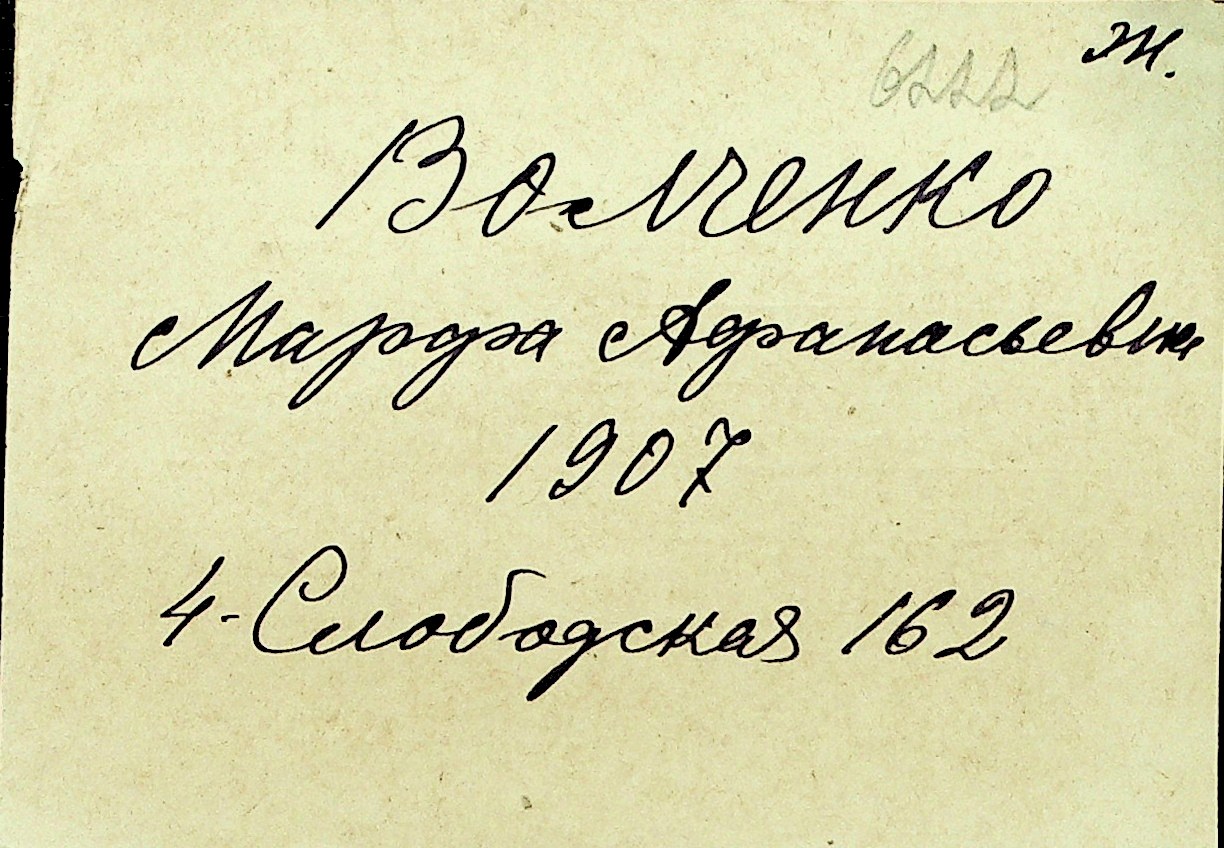 ж.
6222
Волченко
Марфа Афанасьевна
1907
4-Слободская 162